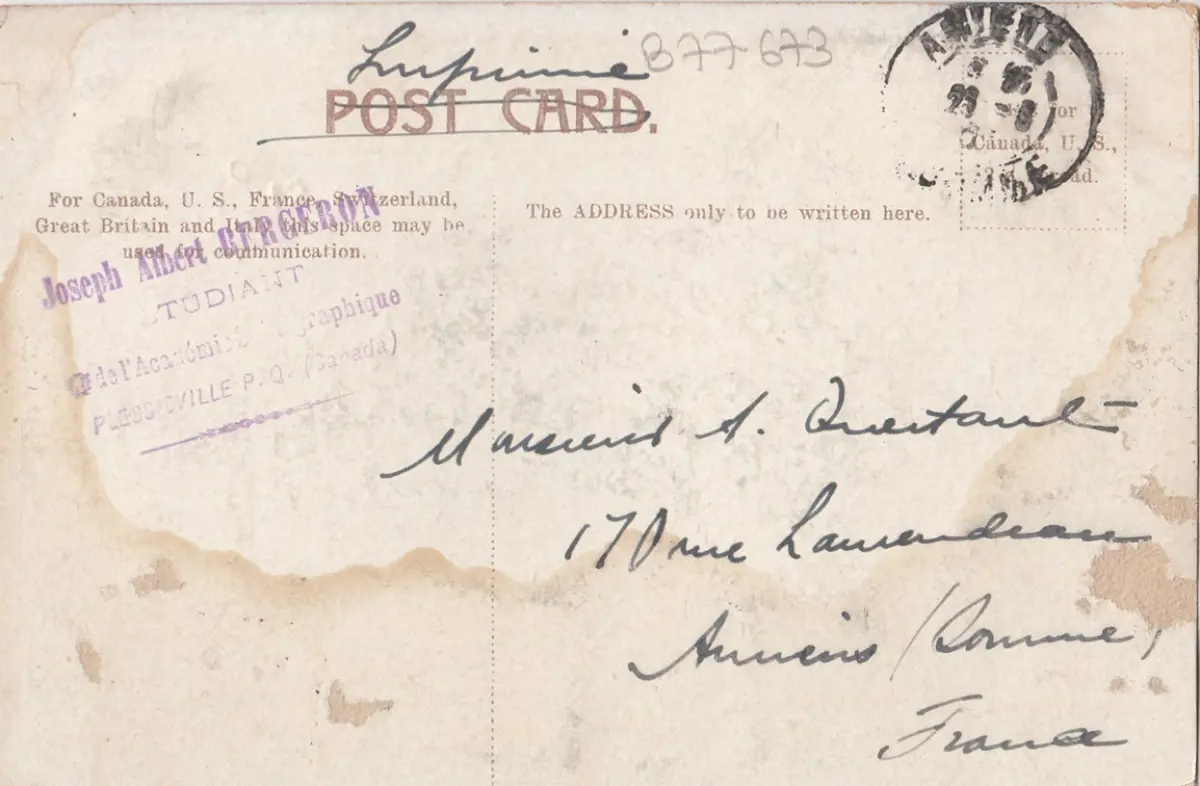 Imprimé
B77-673
POST CARD.
AMIENS
SOMME
for
Canada, U. S.,
For Canada, U. S., France, Switzerland,
Great Britain and Italy this space may be
used for communication.
The ADDRESS only to be written here.
Joseph Albert BERGERON
ETUDIANT
de l'Académie graphique
PLESSISVILLE P. Q. (Canada)
Monsieur A.
170 rue Laurendeau
Amiens (Somme)
France